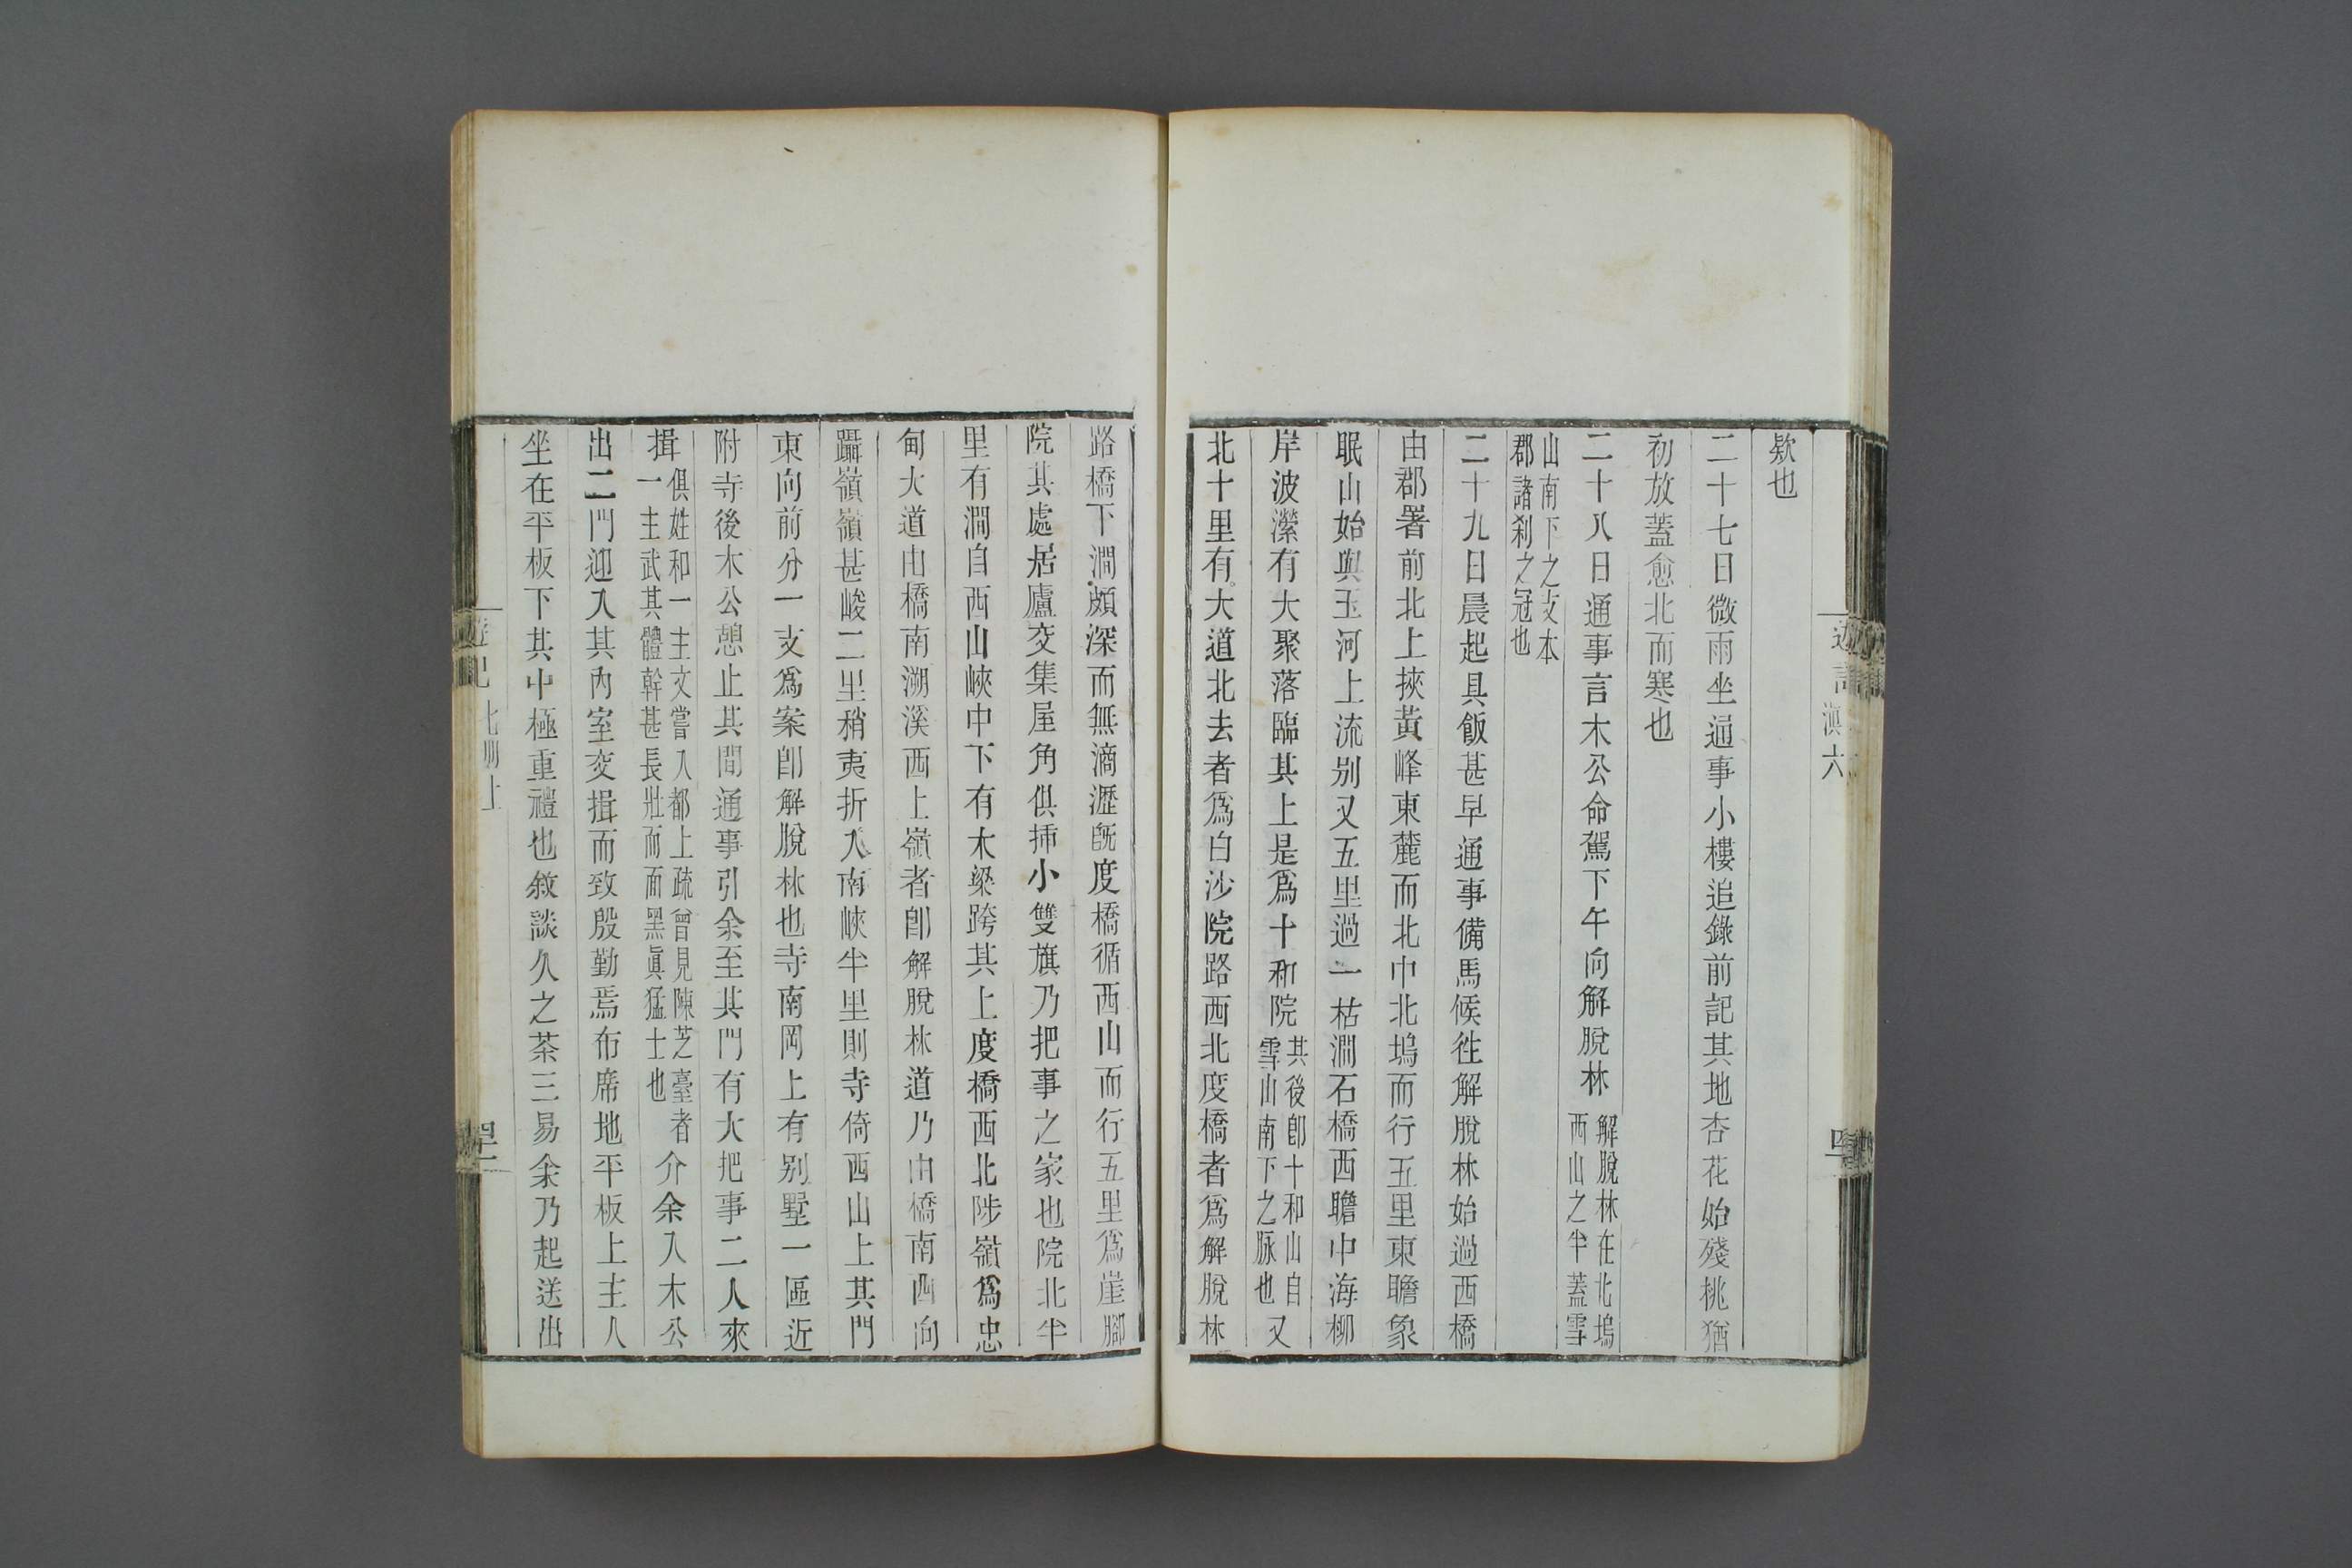 欵也
二十七日微雨坐通事小樓追錄前記其地杏花始殘桃猶
初放蓋愈北而寒也
二十八日通事言木公命駕下午向解脫林解脫林在北塢西山之半蓋雪
山南下之支本郡諸刹之冠也
二十九日晨起具飯甚早通事備馬候徃解脫林始過西橋
由郡署前北上挾黃峰東麓而北中北塢而行五里東瞻象
眠山始與玉河上流别又五里過一枯澗石橋西瞻中海柳
岸波瀠有大聚落臨其上是爲十和院其後卽十和山自雪山南下之脉也又
北十里有大道北去者爲白沙院路西北度橋者爲解脫林
路橋下澗頗深而無滴瀝旣度橋循西山而行五里爲崖腳
院其處居廬交集屋角俱揷小雙旗乃把事之家也院北半
里有澗自西山峽中下有木梁跨其上度橋西北陟嶺爲忠
甸大道由橋南溯溪西上嶺者卽解脫林道乃由橋南西向
躡嶺嶺甚峻二里稍夷折入南峽半里則寺倚西山上其門
東向前分一支爲案卽解脫林也寺南岡上有别墅一區近
附寺後木公憩止其間通事引余至其門有大把事二人來
揖俱姓和一主文嘗入都上疏曾見陳芝臺者一主武其體幹甚長壯而面黑眞猛士也介余入木公
出二門迎入其內室交揖而致殷勤焉布席地平板上主人
坐在平板下其中極重禮也敘談久之茶三易余乃起送出
遊記
滇六